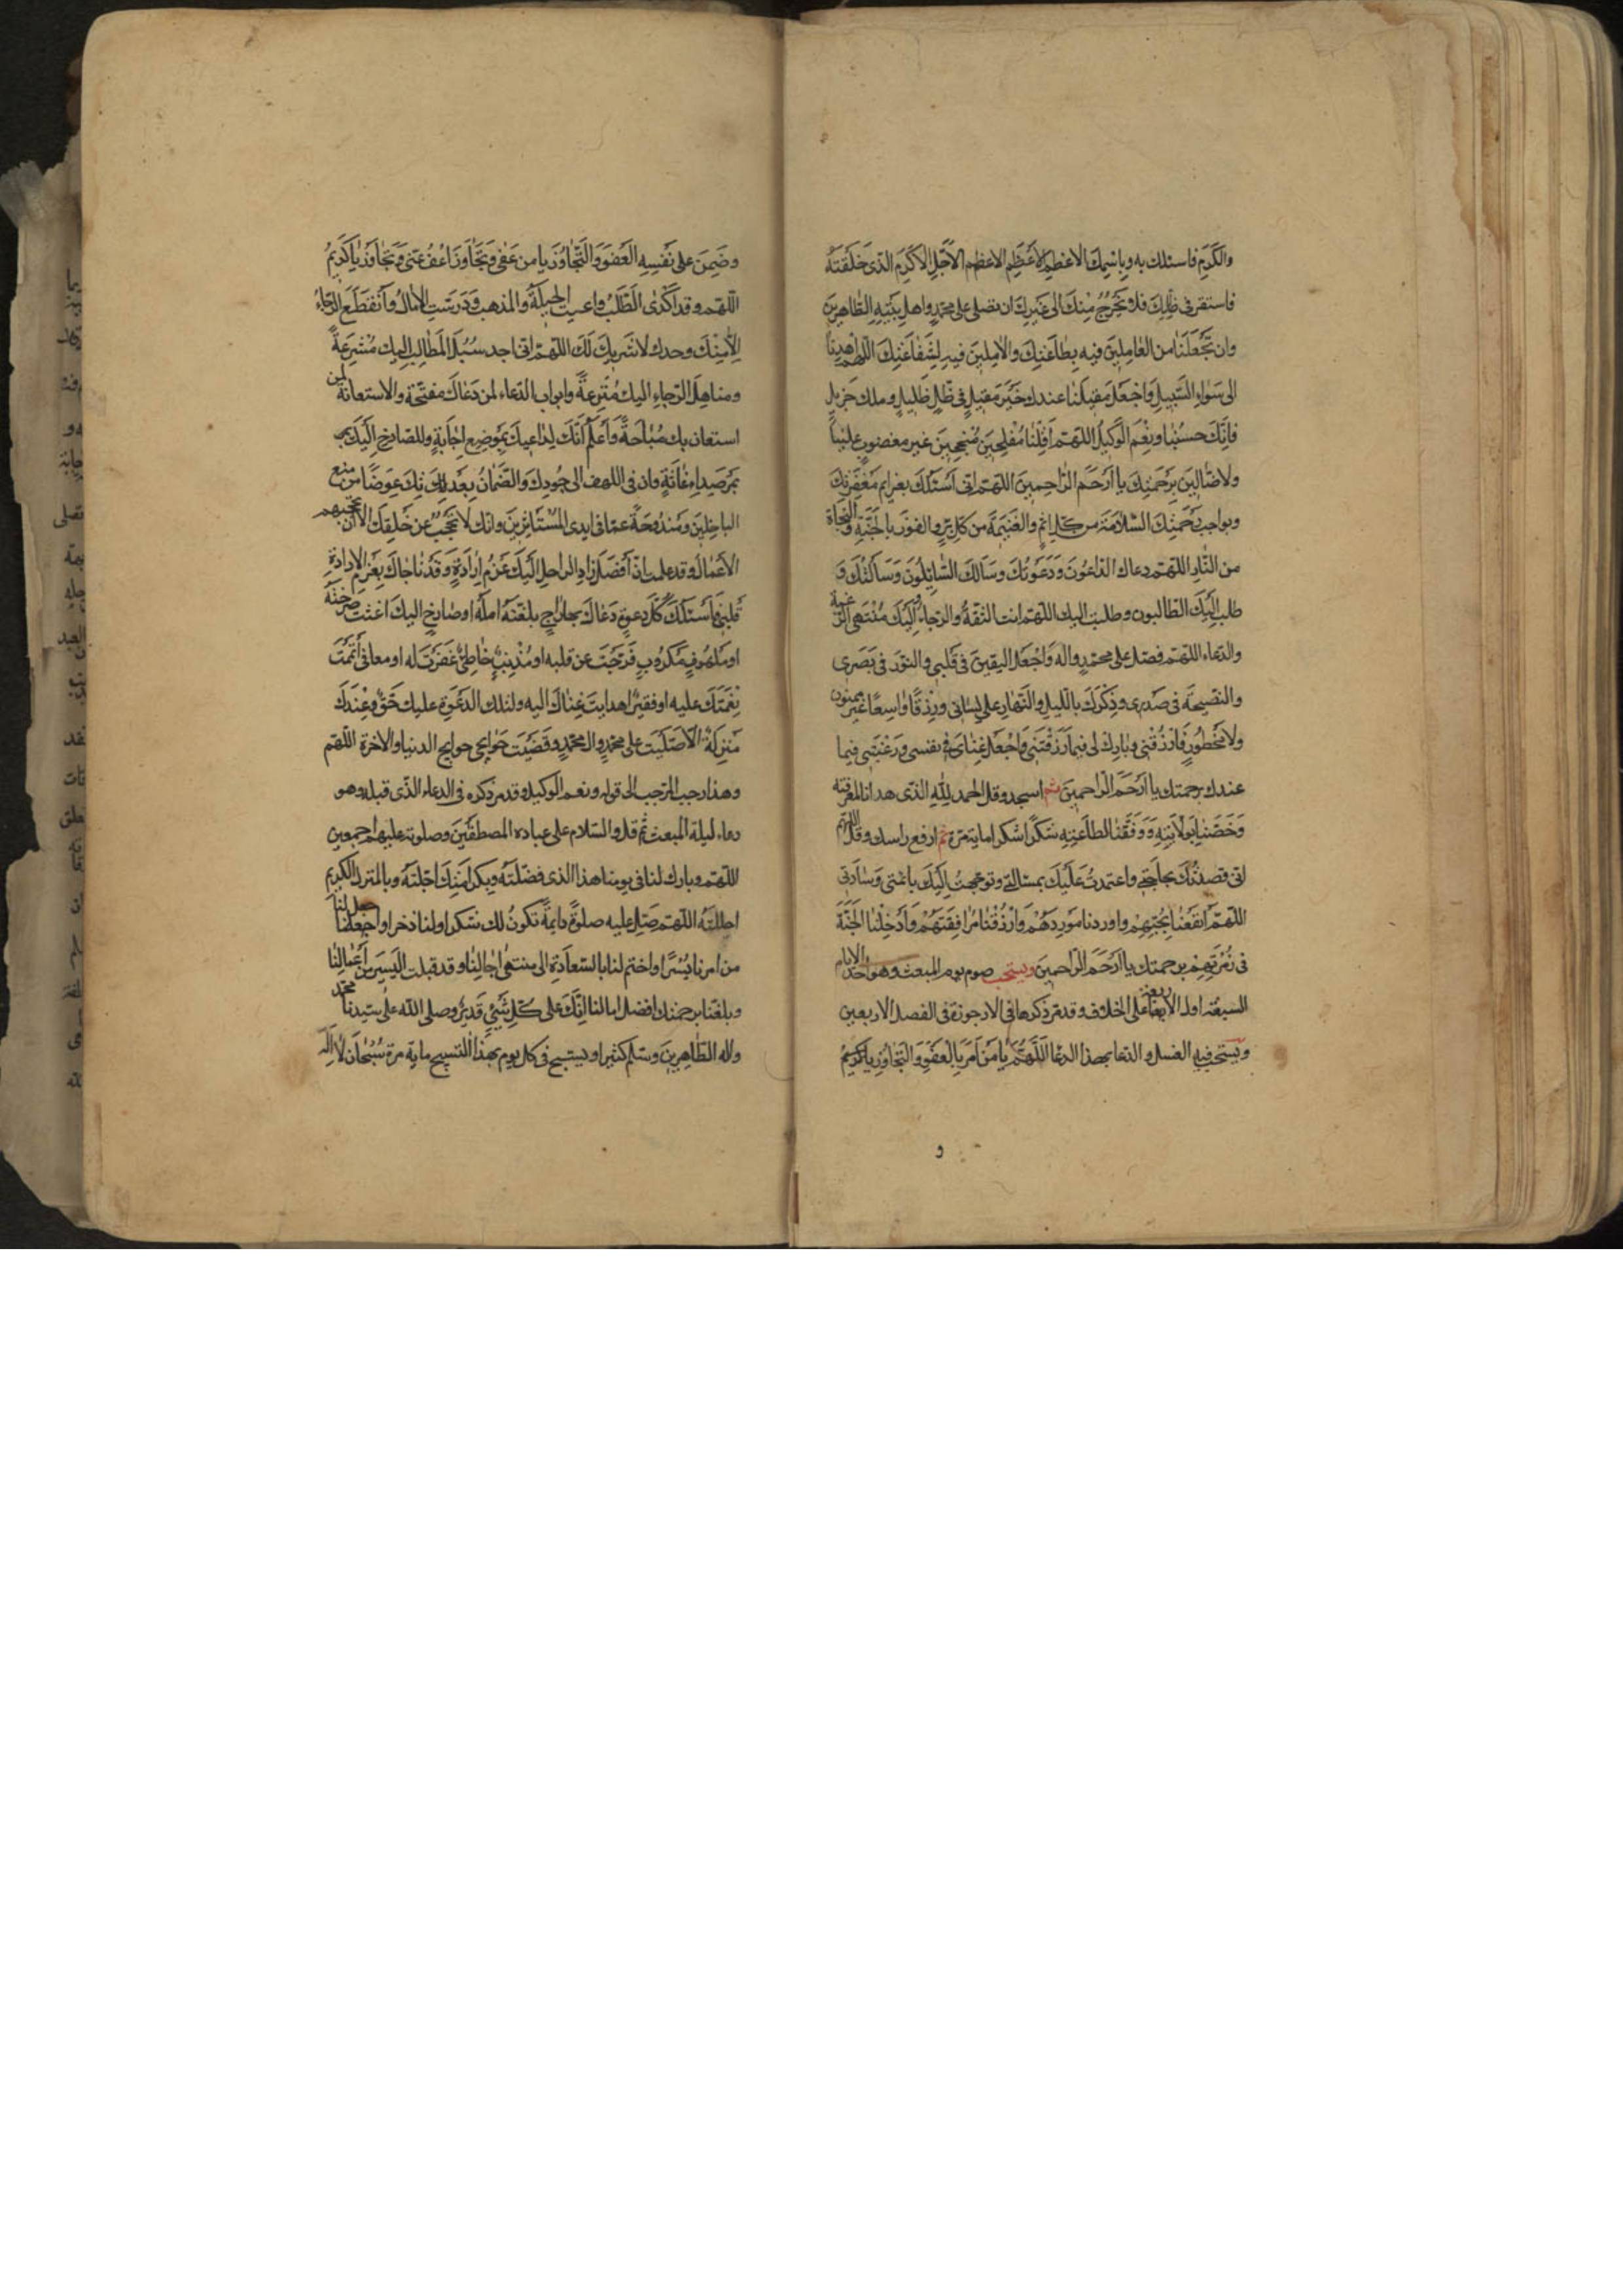 والكَرَم فاسئلك به وباسمك الاعظم الاعظم الاعظم الاجل الاكرم الذى خلقته
فاستقر فى ظلك فلا يخرج منك الى غيرك ان تصلى على محمد واهل بيته الطاهرين
وان تجعلنا من العاملين فيه بطاعتك والاملين فيه لشفاعتك اللهم اهدنا
الى سواء السبيل واجعل مقيلنا عندك خير مقيل فى ظل ظليل وملك جزيل
فانك حسبنا ونعم الوكيل اللهم اقلبنا مفلحين منجحين غير مغضوب علينا
ولا ضالين برحمتك يا ارحم الراحمين اللهم انى اسئلك بعزايم مغفرتك
وبواجب رحمتك السلامة من كل اثم والغنيمة من كل بر والفوز بالجنة والنجاة
من النار اللهم دعاك الداعون ودعوتك وسالك السائلون وسالتك و
طلب اليك الطالبون وطلبت اليك اللهم انت الثقة والرجاء واليك منتهى الرغبة
والدعاء اللهم فصل على محمد واله واجعل اليقين فى قلبى والنور فى بصرى
والنصيحة فى صدرى وذكرك بالليل والنهار على لسانى ورزقا واسعا غير ممنون
ولا محظور فارزقنى وبارك لى فيما رزقتنى واجعل غناى فى نفسى ورغبتى فيما
عندك برحمتك يا ارحم الراحمين ثم اسجد وقل الحمد لله الذى هدانا لمعرفته
وخصنا بولايته ووفقنا لطاعته شكرا شكرا ماية مرة ثم ارفع راسك وقل اللهم
انى قصدتك بحاجتى واعتمدت عليك بمسالتى وتوجهت اليك بائمتى وسادتى
اللهم انفعنا بحبهم واوردنا موردهم وارزقنا مرافقتهم وادخلنا الجنة
فى زمرتهم برحمتك يا ارحم الراحمين ويستحب صوم يوم المبعث وهو احد الايام
السبعة او الاربعة على الخلاف وقد مر ذكرها فى الارجوزة فى الفصل الاربعين
ويستحب فيه الغسل والدعا بهذا الدعا اللهم يا من امر بالعفو والتجاوز يا كريم
و
وضمن على نفسه العفو والتجاوز يا من عفى وتجاوز اعف عنى وتجاوز يا كريم
اللهم وقد اكدى الطلب واعيت الحيلة والمذهب ودرست الامال وانقطع الرجاء
الا منك وحدك لا شريك لك اللهم انى اجد سبل المطالب اليك مشرعة
ومناهل الرجاء اليك مترعة وابواب الدعاء لمن دعاك مفتحة والاستعانة لمن
استعان بك مباحة واعلم انك لداعيك بموضع اجابة وللصارخ اليك
بمرصد اغاثة وان فى اللهف الى جودك والضمان بعدتك عوضا من منع
الباخلين ومندوحة عما فى ايدى المستاثرين وانك لا تحجب عن خلقك الا ان تحجبهم
الاعمال وقد علمت ان افضل زاد الراحل اليك عزم ارادة وقد ناجاك بعزم الارادة
قلبى فاسئلك بكل دعوة دعاك بها راج بلغته امله او صارخ اليك اغثت صرخته
او ملهوف مكروب فرجت عن قلبه او مذنب خاطئ غفرت له او معافى اتممت
نعمتك عليه او فقير اهدايت غناك اليه ولتلك الدعوة عليك حق وعندك
منزلة الا صليت على محمد وال محمد وقضيت حوائجى حوايج الدنيا والاخرة اللهم
وهذا رجب المرجب الى قوله ونعم الوكيل وقد مر ذكره فى الدعاء الذى قبله وهو
دعاء ليلة المبعث ثم قل والسلام على عباده المصطفين وصلوته عليهم اجمعين
اللهم وبارك لنا فى يومنا هذا الذى فضلته وبكرامتك اجلته وبالمنزل الكريم
احللته اللهم صل عليه صلوة دايمة تكون لك شكرا ولنا ذخرا واجعل لنا
من امرنا يسرا واختم لنا بالسعادة الى منتهى اجالنا وقد قبلت اليسير من اعمالنا
وبلغنا برحمتك افضل امالنا انك على كل شيئ قدير وصلى الله على سيدنا محمد
واله الطاهرين وسلم كثيرا ويستحب فى كل يوم بهذا التسبيح ماية مرة سبحان الاله